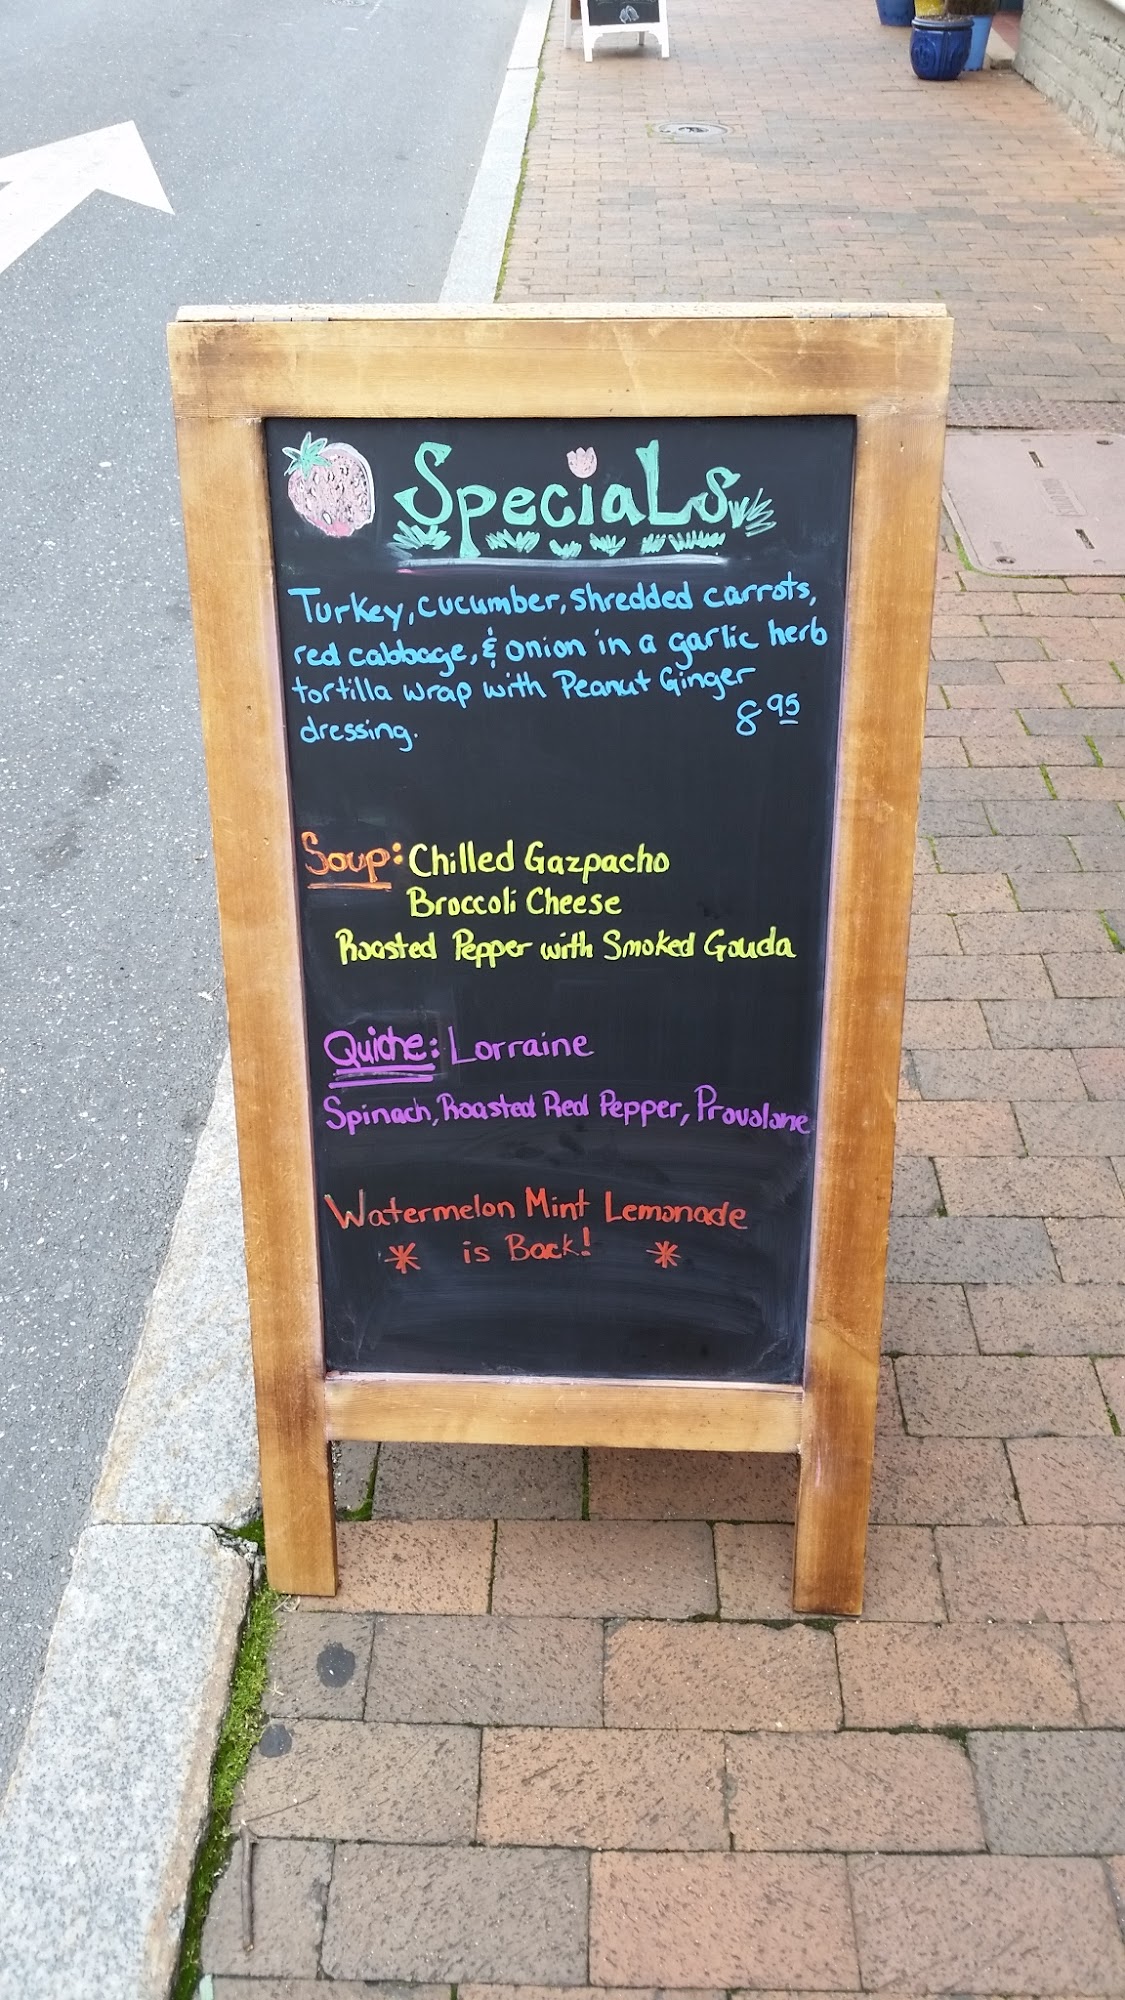 SpeciaLs
Turkey, cucumber, shredded carrots,
red cabbage, & onion in a garlic herb
tortilla wrap with Peanut Ginger
dressing. 8 95
Soup: Chilled Gazpacho
Broccoli Cheese
Roasted Pepper with Smoked Gouda
Quiche: Lorraine
Spinach, Roasted Red Pepper, Provolone
Watermelon Mint Lemonade
* is Back! *